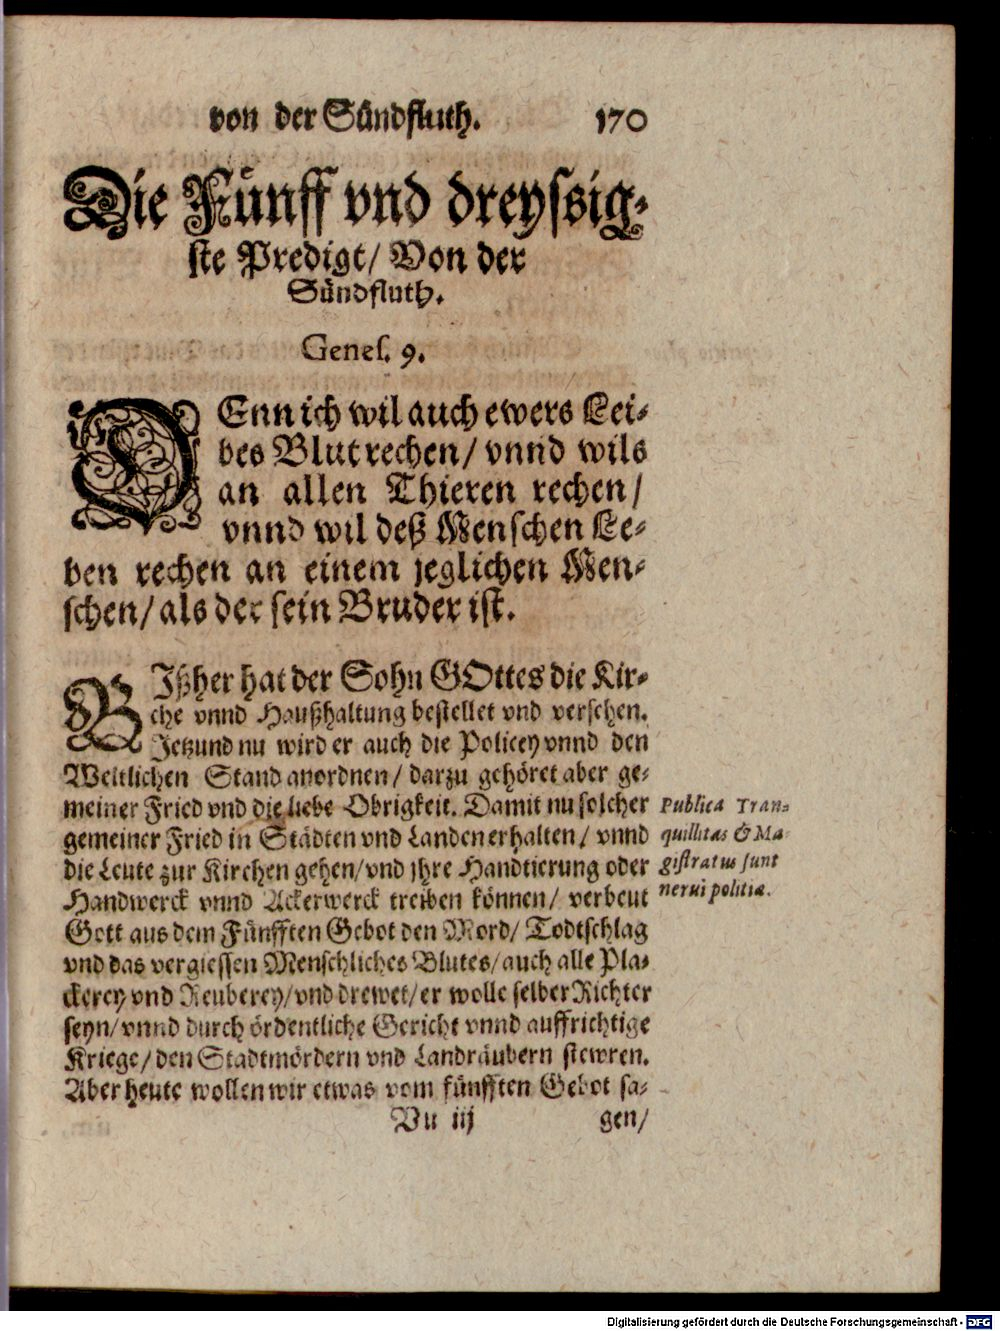 von der Sündfluth. 170
Die Fünff vnd dreyssig-
ste Predigt/ Von der
Sündfluth.
Genes. 9.
DEnn ich wil auch ewers Lei-
bes Blut rechen/ vnnd wils
an allen Thieren rechen/
vnnd wil deß Menschen Le-
ben rechen an einem jeglichen Men-
schen/ als der sein Bruder ist.
BIßher hat der Sohn GOttes die Kir-
che vnnd Haußhaltung bestellet vnd versehen.
Jetzund nu wird er auch die Policey vnnd den
Weltlichen Stand anordnen/ darzu gehöret aber ge-
meiner Fried vnd die liebe Obrigkeit. Damit nu solcher
gemeiner Fried in Städten vnd Landen erhalten/ vnnd
die Leute zur Kirchen gehen/ vnd jhre Handtierung oder
Handwerck vnnd Ackerwerck treiben können/ verbeut
Gott aus dem Fünfften Gebot den Mord/ Todtschlag
vnd das vergiessen Menschliches Blutes/ auch alle Pla-
ckerey vnd Reuberey/ vnd drewet/ er wolle selber Richter
seyn/ vnnd durch ördentliche Gericht vnnd auffrichtige
Kriege/ den Stadtmördern vnd Landräubern stewren.
Aber heute wollen wir etwas vom fünfften Gebot sa-
Vu iij gen/
Publica Tran-
quillitas & Ma-
gistratus sunt
nerui politiæ.
Digitalisierung gefördert durch die Deutsche Forschungsgemeinschaft - DFG